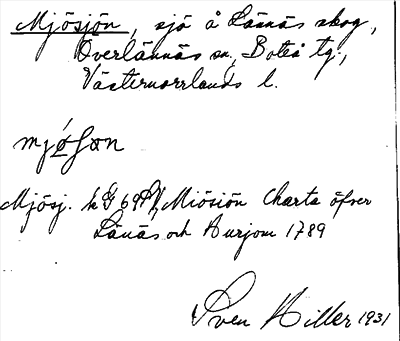 Mjösjön, sjö å Lännäs skog,
Överlännäs sn, Boteå tg.,
Västernorrlands l.
Mjösj. kG 69 Miösiön Charta öfver
Länäs och Aurjom 1789
Sven Hiller 1931